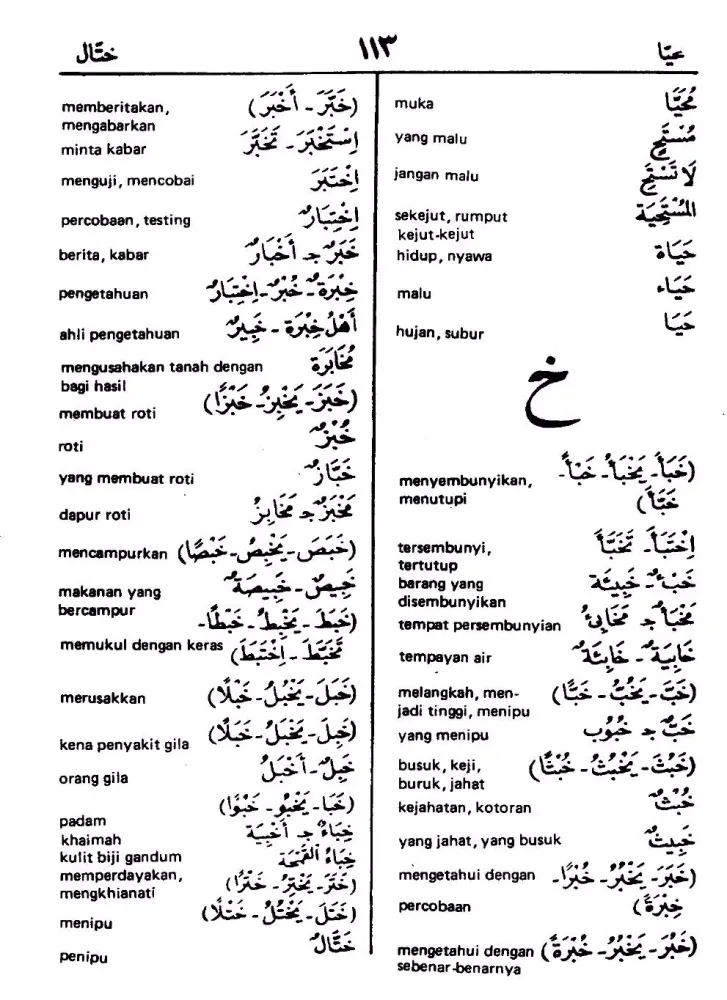 حيّا ١١٣ ختّال
muka مُحَيَّا
yang malu مُسْتَحٍ
jangan malu لَا تَسْتَحِ
sekejut, rumput المُسْتَحِيَة
kejut-kejut
hidup, nyawa حَيَاة
malu حَيَاء
hujan, subur حَيَا
خ
menyembunyikan, (خَبَأَ - يَخْبَأُ - خَبْأً -
menutupi خَبَّأَ)
tersembunyi, اِخْتَبَأَ - تَخَبَّأَ
tertutup
barang yang خَبْءٌ - خَبِيئَة
disembunyikan
tempat persembunyian مَخْبَأٌ ج مَخَابِئُ
tempayan air خَابِيَةٌ - خَابِئَةٌ
melangkah, men- (خَبَّ - يَخُبُّ - خَبًّا)
jadi tinggi, menipu
yang menipu خَبٌّ ج خُبُوب
busuk, keji, (خَبُثَ - يَخْبُثُ - خُبْثًا)
buruk, jahat
kejahatan, kotoran خُبْثٌ
yang jahat, yang busuk خَبِيثٌ
mengetahui dengan (خَبَرَ - يَخْبُرُ - خُبْرًا -
percobaan خِبْرَةً)
mengetahui dengan (خَبُرَ - يَخْبُرُ - خُبْرَةً)
sebenar-benarnya
memberitakan, (خَبَّرَ - أَخْبَرَ)
mengabarkan
minta kabar اِسْتَخْبَرَ - تَخَبَّرَ
menguji, mencobai اِخْتَبَرَ
percobaan, testing اِخْتِبَارٌ
berita, kabar خَبَرٌ ج أَخْبَارٌ
pengetahuan خِبْرَةٌ - خُبْرٌ - اِخْتِبَارٌ
ahli pengetahuan أَهْلُ خِبْرَة - خَبِيرٌ
mengusahakan tanah dengan مُخَابَرَة
bagi hasil
membuat roti (خَبَزَ - يَخْبِزُ - خَبْزًا)
roti خُبْزٌ
yang membuat roti خَبَّازٌ
dapur roti مَخْبَزٌ ج مَخَابِزُ
mencampurkan (خَبَصَ - يَخْبِصُ - خَبْصًا)
makanan yang خَبِيصٌ - خَبِيصَةٌ
bercampur
(خَبَطَ - يَخْبِطُ - خَبْطًا -
memukul dengan keras تَخَبَّطَ - اِخْتَبَطَ)
merusakkan (خَبَلَ - يَخْبُلُ - خَبْلًا)
kena penyakit gila (خَبِلَ - يَخْبَلُ - خَبَلًا)
orang gila خَبِلٌ - أَخْبَلُ
padam (خَبَا - يَخْبُو - خَبْوًا)
khaimah خِبَاءٌ ج أَخْبِيَة
kulit biji gandum خِبَاءُ القَمْحَة
memperdayakan, (خَتَرَ - يَخْتِرُ - خَتْرًا)
mengkhianati
menipu (خَتَلَ - يَخْتُلُ - خَتْلًا)
penipu خَتَّالٌ